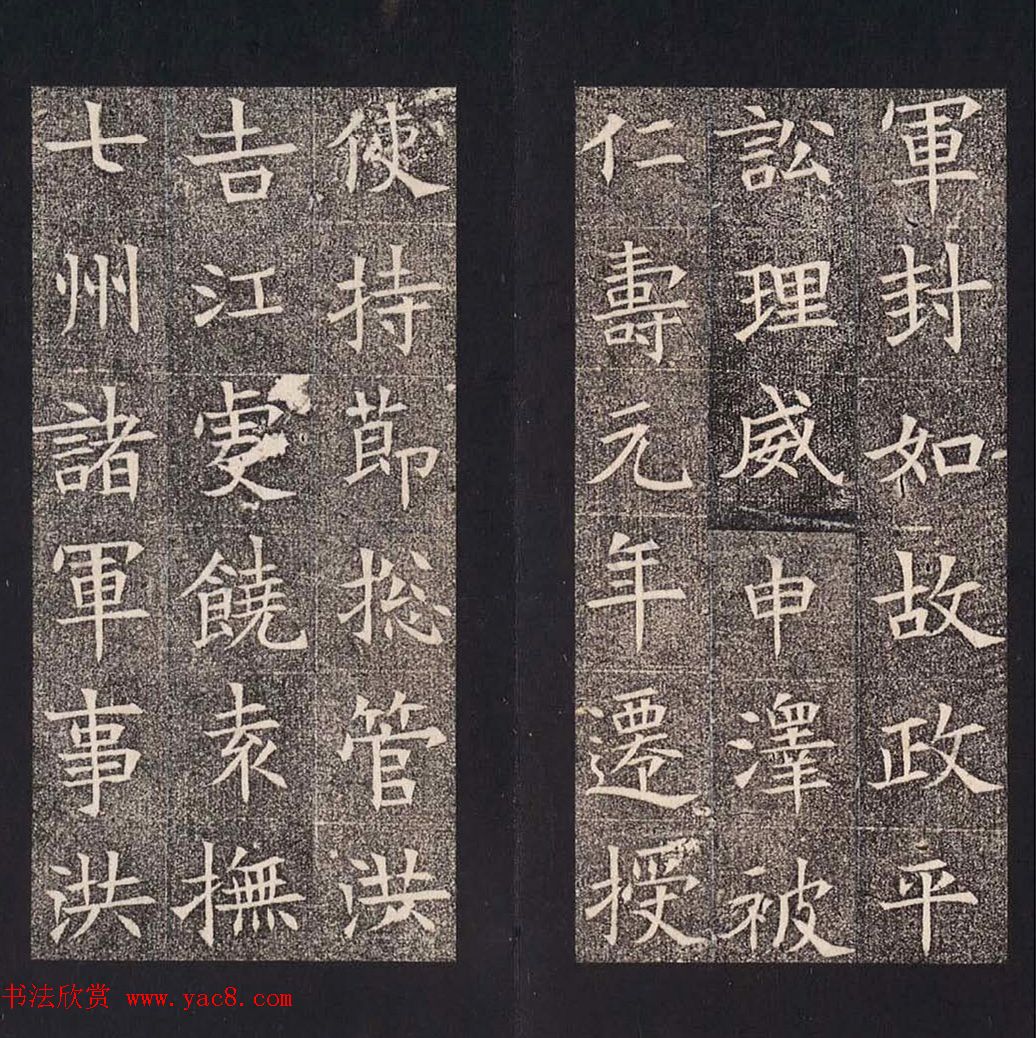 軍封如故政平
訟理威申澤被
仁壽元年遷授
使持節揔管洪
吉江虔饒袁撫
七州諸軍事洪
书法欣赏 www.yac8.com